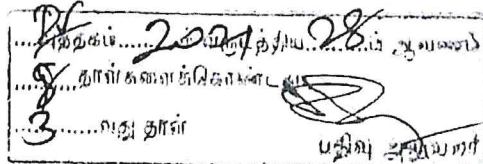 1 புத்தகம் 2021 வருடத்திய 28 ம் ஆவணம்
8 தாள்களைக்கொண்டது
3 வது தாள்
பதிவு அலுவலர்